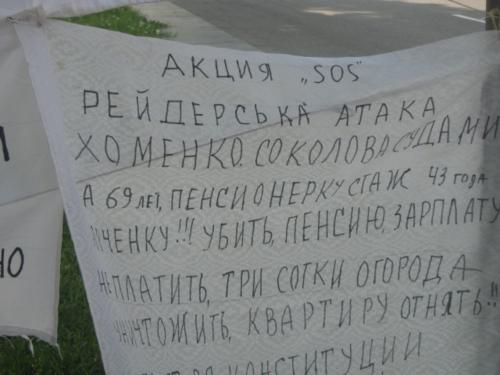 АКЦИЯ „SOS"
РЕЙДЕРСЬКА АТАКА
ХОМЕНКО, СОКОЛОВА СУДАМИ
А 69 лет, ПЕНСИОНЕРКУ СТАЖ 43 года
УБИТЬ, ПЕНСИЮ, ЗАРПЛАТУ
НЕ ПЛАТИТЬ, ТРИ СОТКИ ОГОРОДА
УНИЧТОЖИТЬ, КВАРТИРУ ОТНЯТЬ!!
КОНСТИТУЦИИ